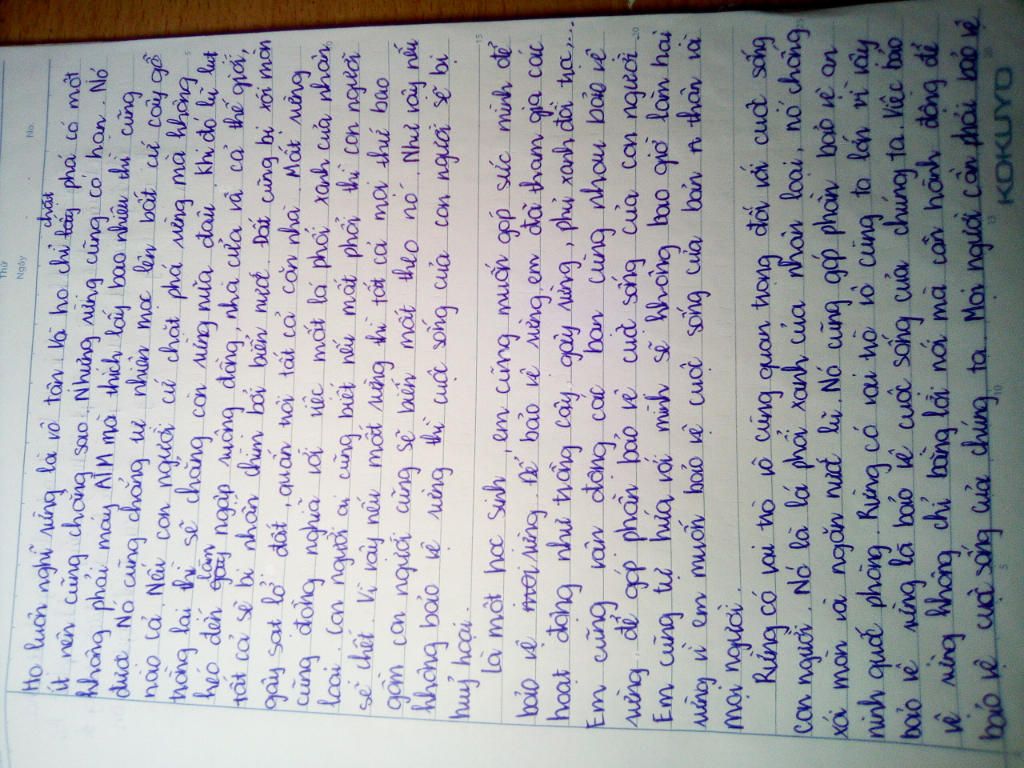 Thứ
Ngày
No.
Họ luôn nghĩ rừng là vô tận và họ chỉ chặt phá có một
ít nên cũng chẳng sao. Nhưng rừng cũng có hạn. Nó
không phải máy ATM mà thích lấy bao nhiêu thì cũng
được. Nó cũng chẳng tự nhiên mọc lên bất cứ cây gỗ
nào cả. Nếu con người cứ chặt phá rừng mà không
trồng lại thì sẽ chẳng còn rừng nữa đâu. Khi đó lũ lụt
kéo đến làm ngập ruộng đồng, nhà cửa và cả thế giới,
tất cả sẽ bị nhấn chìm bởi biển nước. Đất cũng bị xói mòn
gây sạt lở đất, cuốn trôi tất cả căn nhà. Mất rừng
cũng đồng nghĩa với việc mất lá phổi xanh của nhân
loại. Con người ai cũng biết nếu mất phổi thì con người
sẽ chết. Vì vậy nếu mất rừng thì tất cả mọi thứ bao
gồm con người cũng sẽ biến mất theo nó. Như vậy nếu
không bảo vệ rừng thì cuộc sống của con người sẽ bị
huỷ hoại.
Là một học sinh, em cũng muốn góp sức mình để
bảo vệ rừng. Để bảo vệ rừng, em đã tham gia các
hoạt động như trồng cây gây rừng, phủ xanh đồi trọc....
Em cũng vận động các bạn cùng nhau bảo vệ
rừng để góp phần bảo vệ cuộc sống của con người.
Em cũng tự hứa với mình sẽ không bao giờ làm hại
rừng vì em muốn bảo vệ cuộc sống của bản thân và
mọi người.
Rừng có vai trò vô cùng quan trọng đối với cuộc sống
con người. Nó là lá phổi xanh của nhân loại, nó chống
xói mòn và ngăn nước lũ. Nó cũng góp phần bảo vệ an
ninh quốc phòng. Rừng có vai trò vô cùng to lớn vì vậy
bảo vệ rừng là bảo vệ cuộc sống của chúng ta. Việc bảo
vệ rừng không chỉ bằng lời nói mà cần hành động để
bảo vệ cuộc sống của chúng ta. Mọi người cần phải bảo vệ
KOKUYO